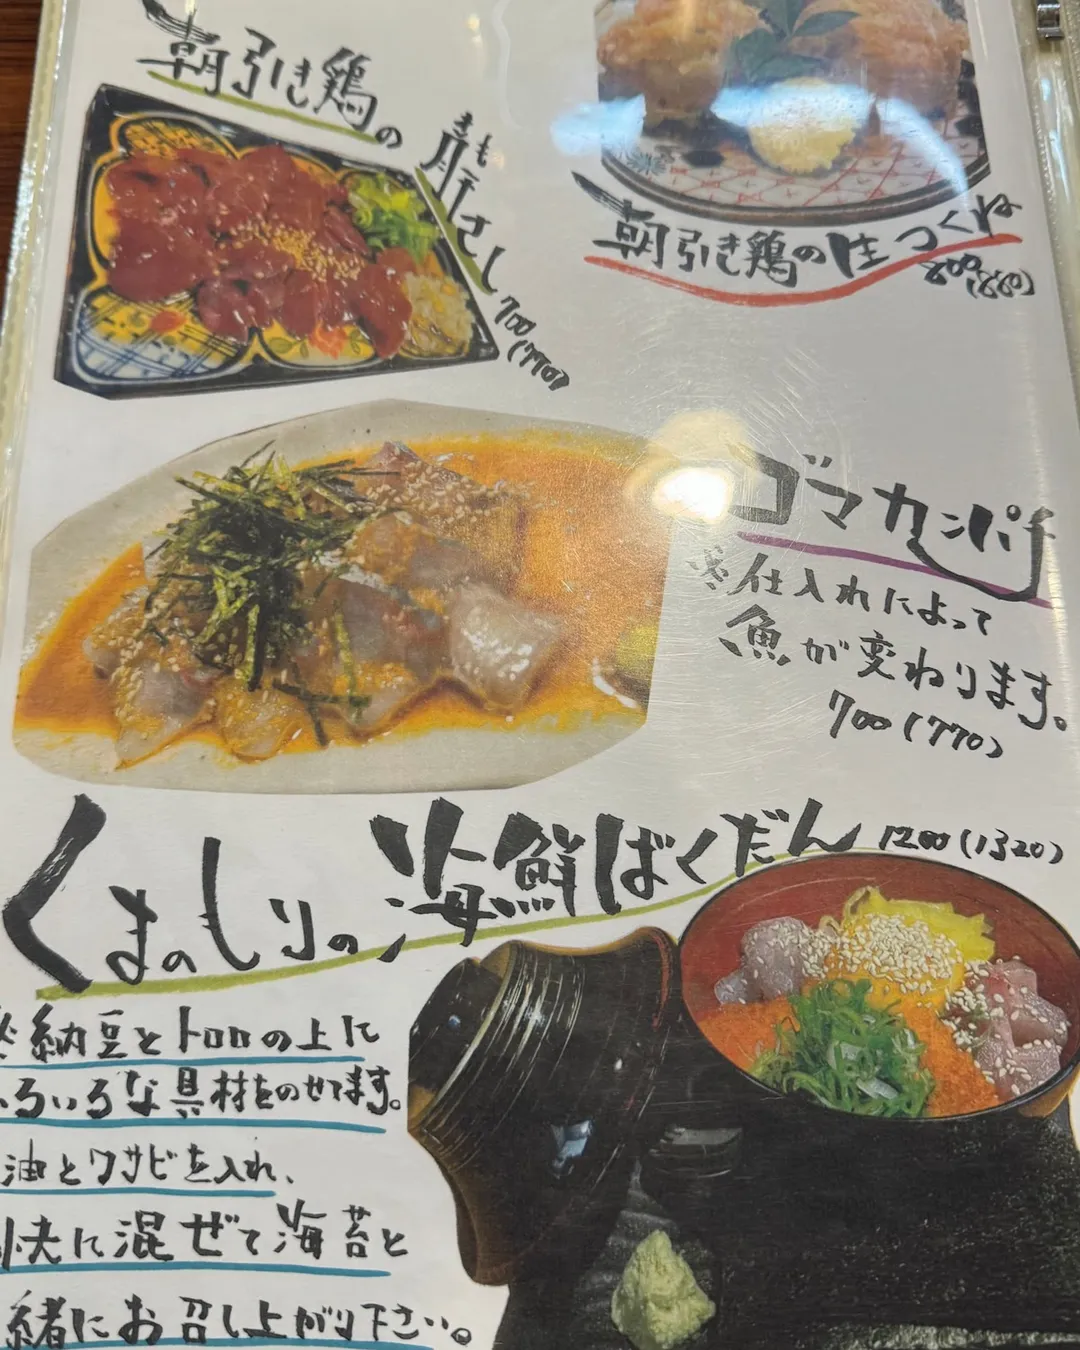 朝引き鶏の
きも
肝さし
700(770)
朝引き鶏の生つくね
800(880)
ゴマカンパチ
※仕入れによって
魚が変わります。
700(770)
くまのしりの海鮮ばくだん 1200(1320)
※納豆とトロロの上に
いろいろな具材をのせてます。
油とワサビを入れ、
快に混ぜて海苔と
緒にお召し上がり下さい。